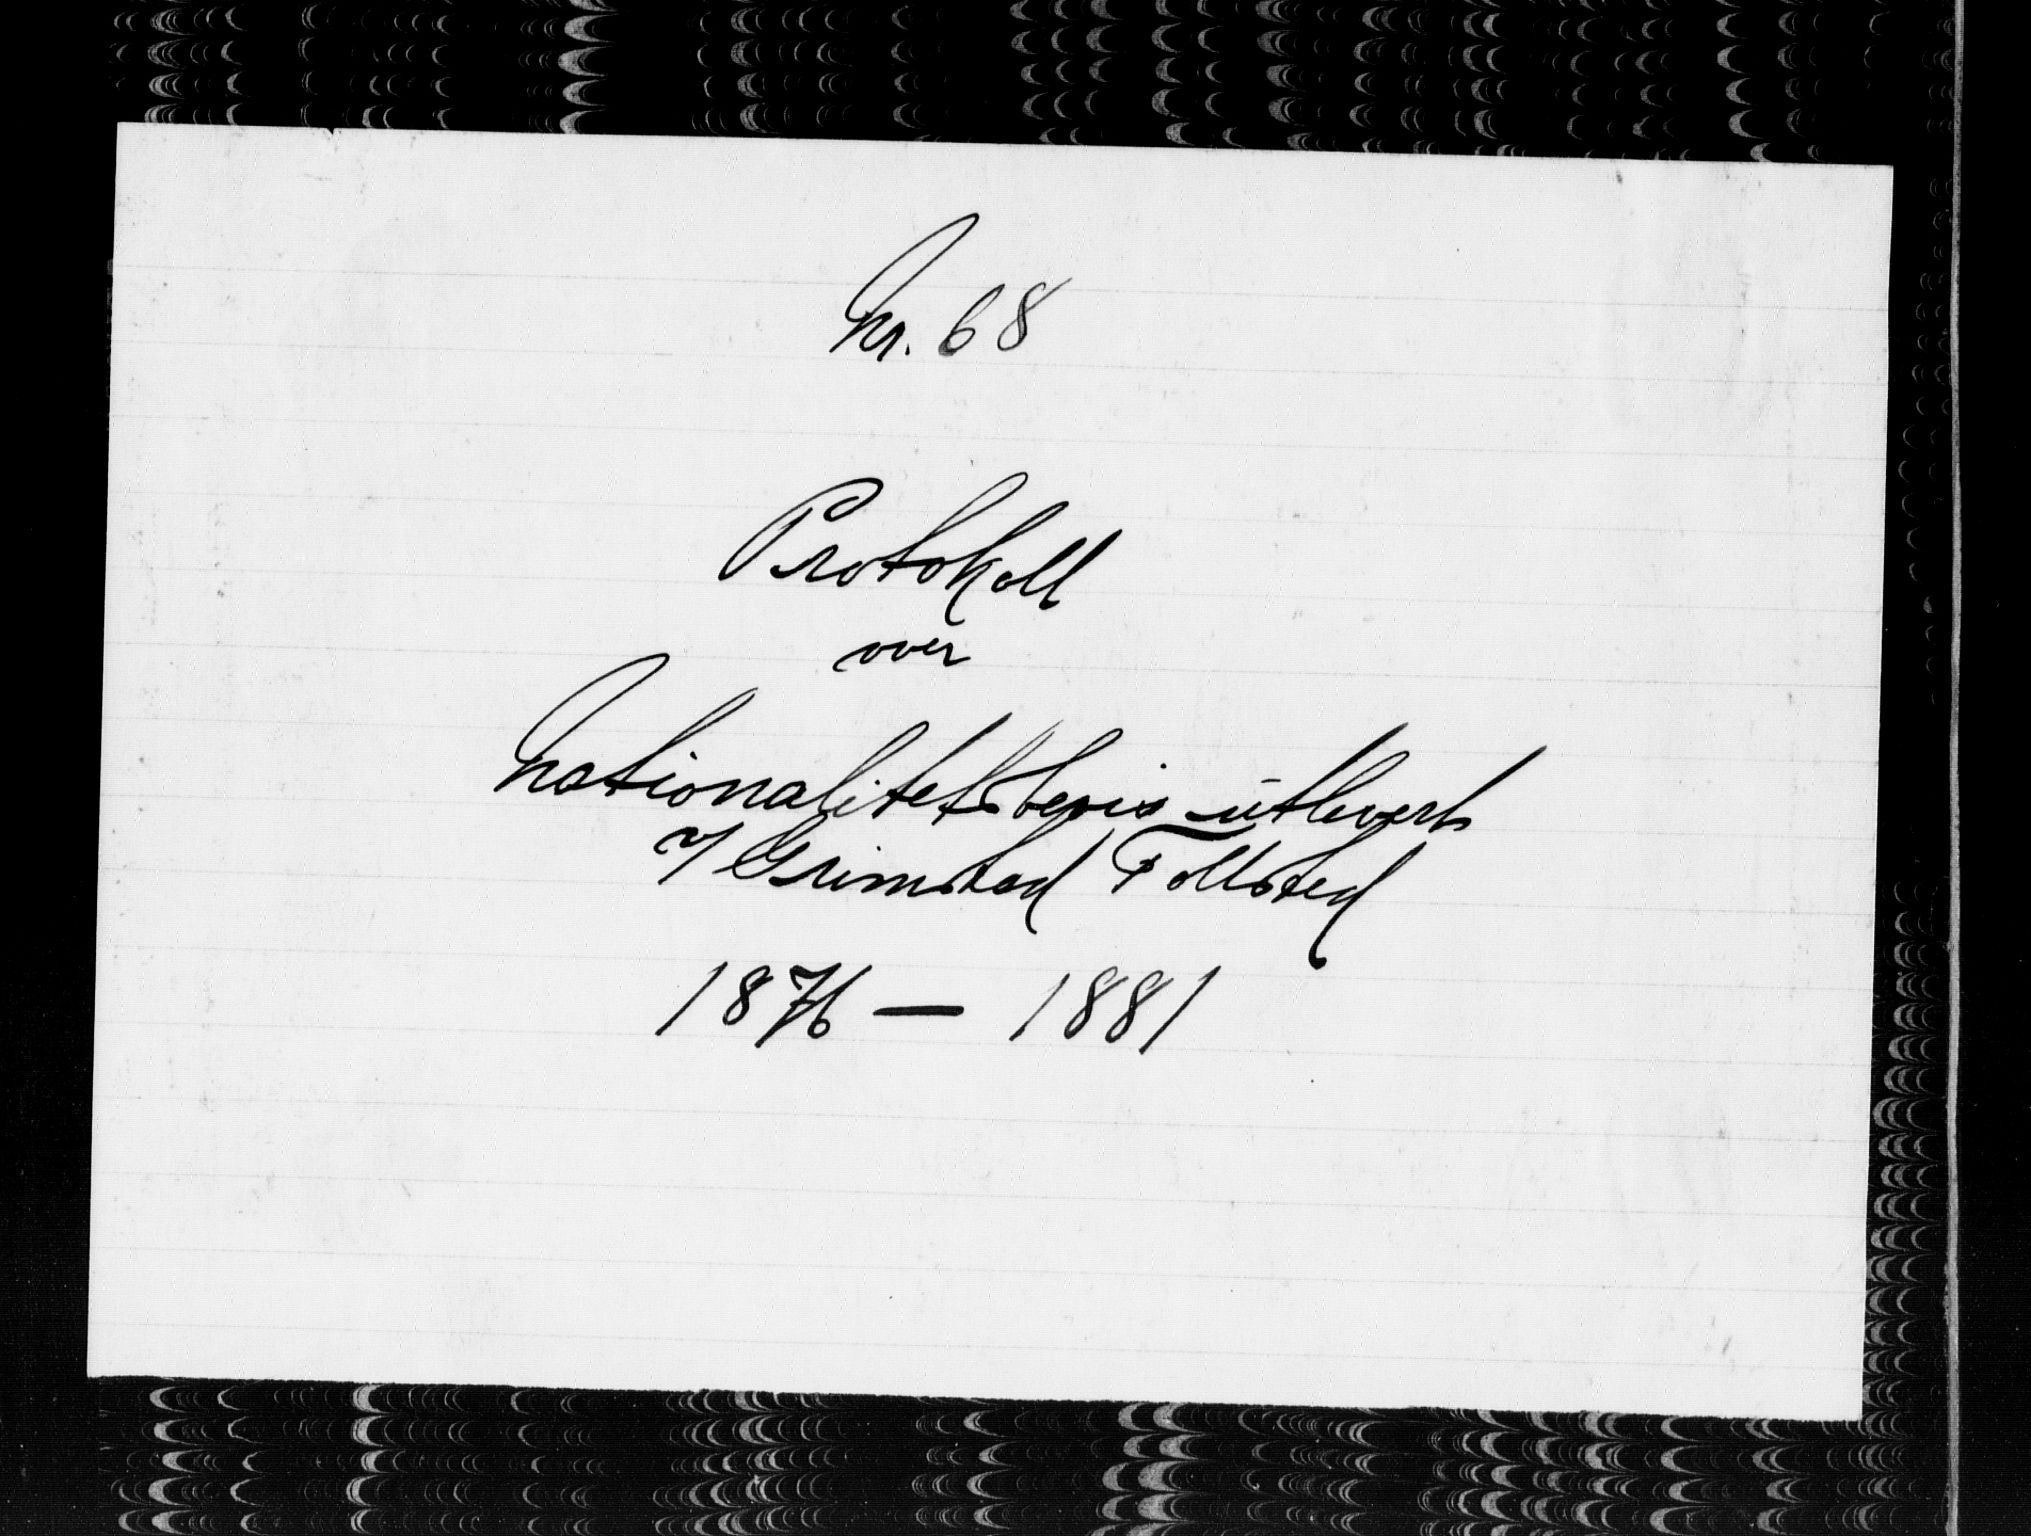 Nr. 68
Protokoll
over
Nationalitetsbevis utlevert
v/ Grimstad Tollsted
1876 — 1881